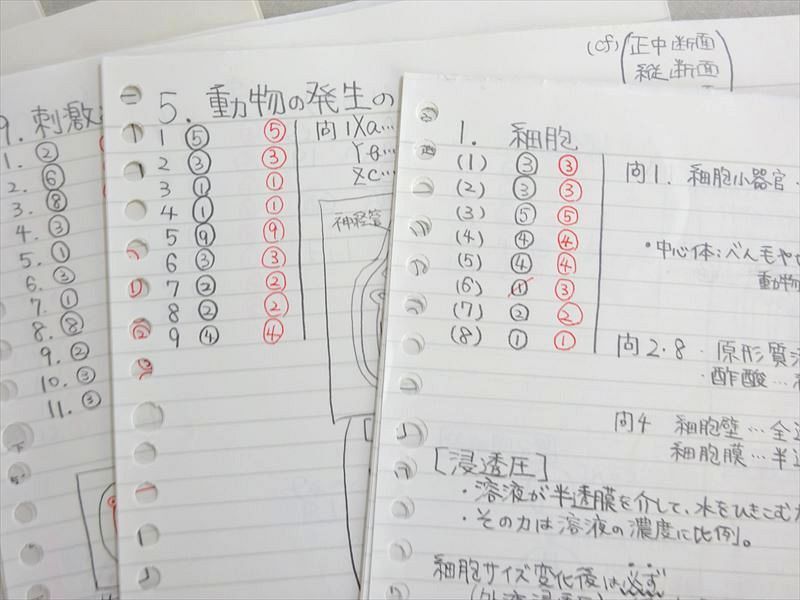 (cf) 正中断面
縦断面
9. 刺激
1. ②
2. ⑥
3. ⑧
4. ③
5. ①
6. ③
7. ①
8. ⑧
9. ②
10. ③
11. ③
5. 動物の発生の
1 ⑤ ⑤
2 ③ ③
3 ① ①
4 ① ①
5 ⑨ ⑨
6 ③ ③
7 ② ②
8 ② ②
9 ④ ④
問1 Xa…
Yb…
Zc…
神経管
1. 細胞
(1) ③ ③
(2) ③ ③
(3) ⑤ ⑤
(4) ④ ④
(5) ④ ④
(6) ① ③
(7) ② ②
(8) ① ①
問1. 細胞小器官
・中心体:べん毛や
動物
問2.8・原形質
・酢酸…
問4 細胞壁…全
細胞膜…半
[浸透圧]
・溶液が半透膜を介して、水をひきこむ
・その力は溶液の濃度に比例。
細胞サイズ変化後は必ず